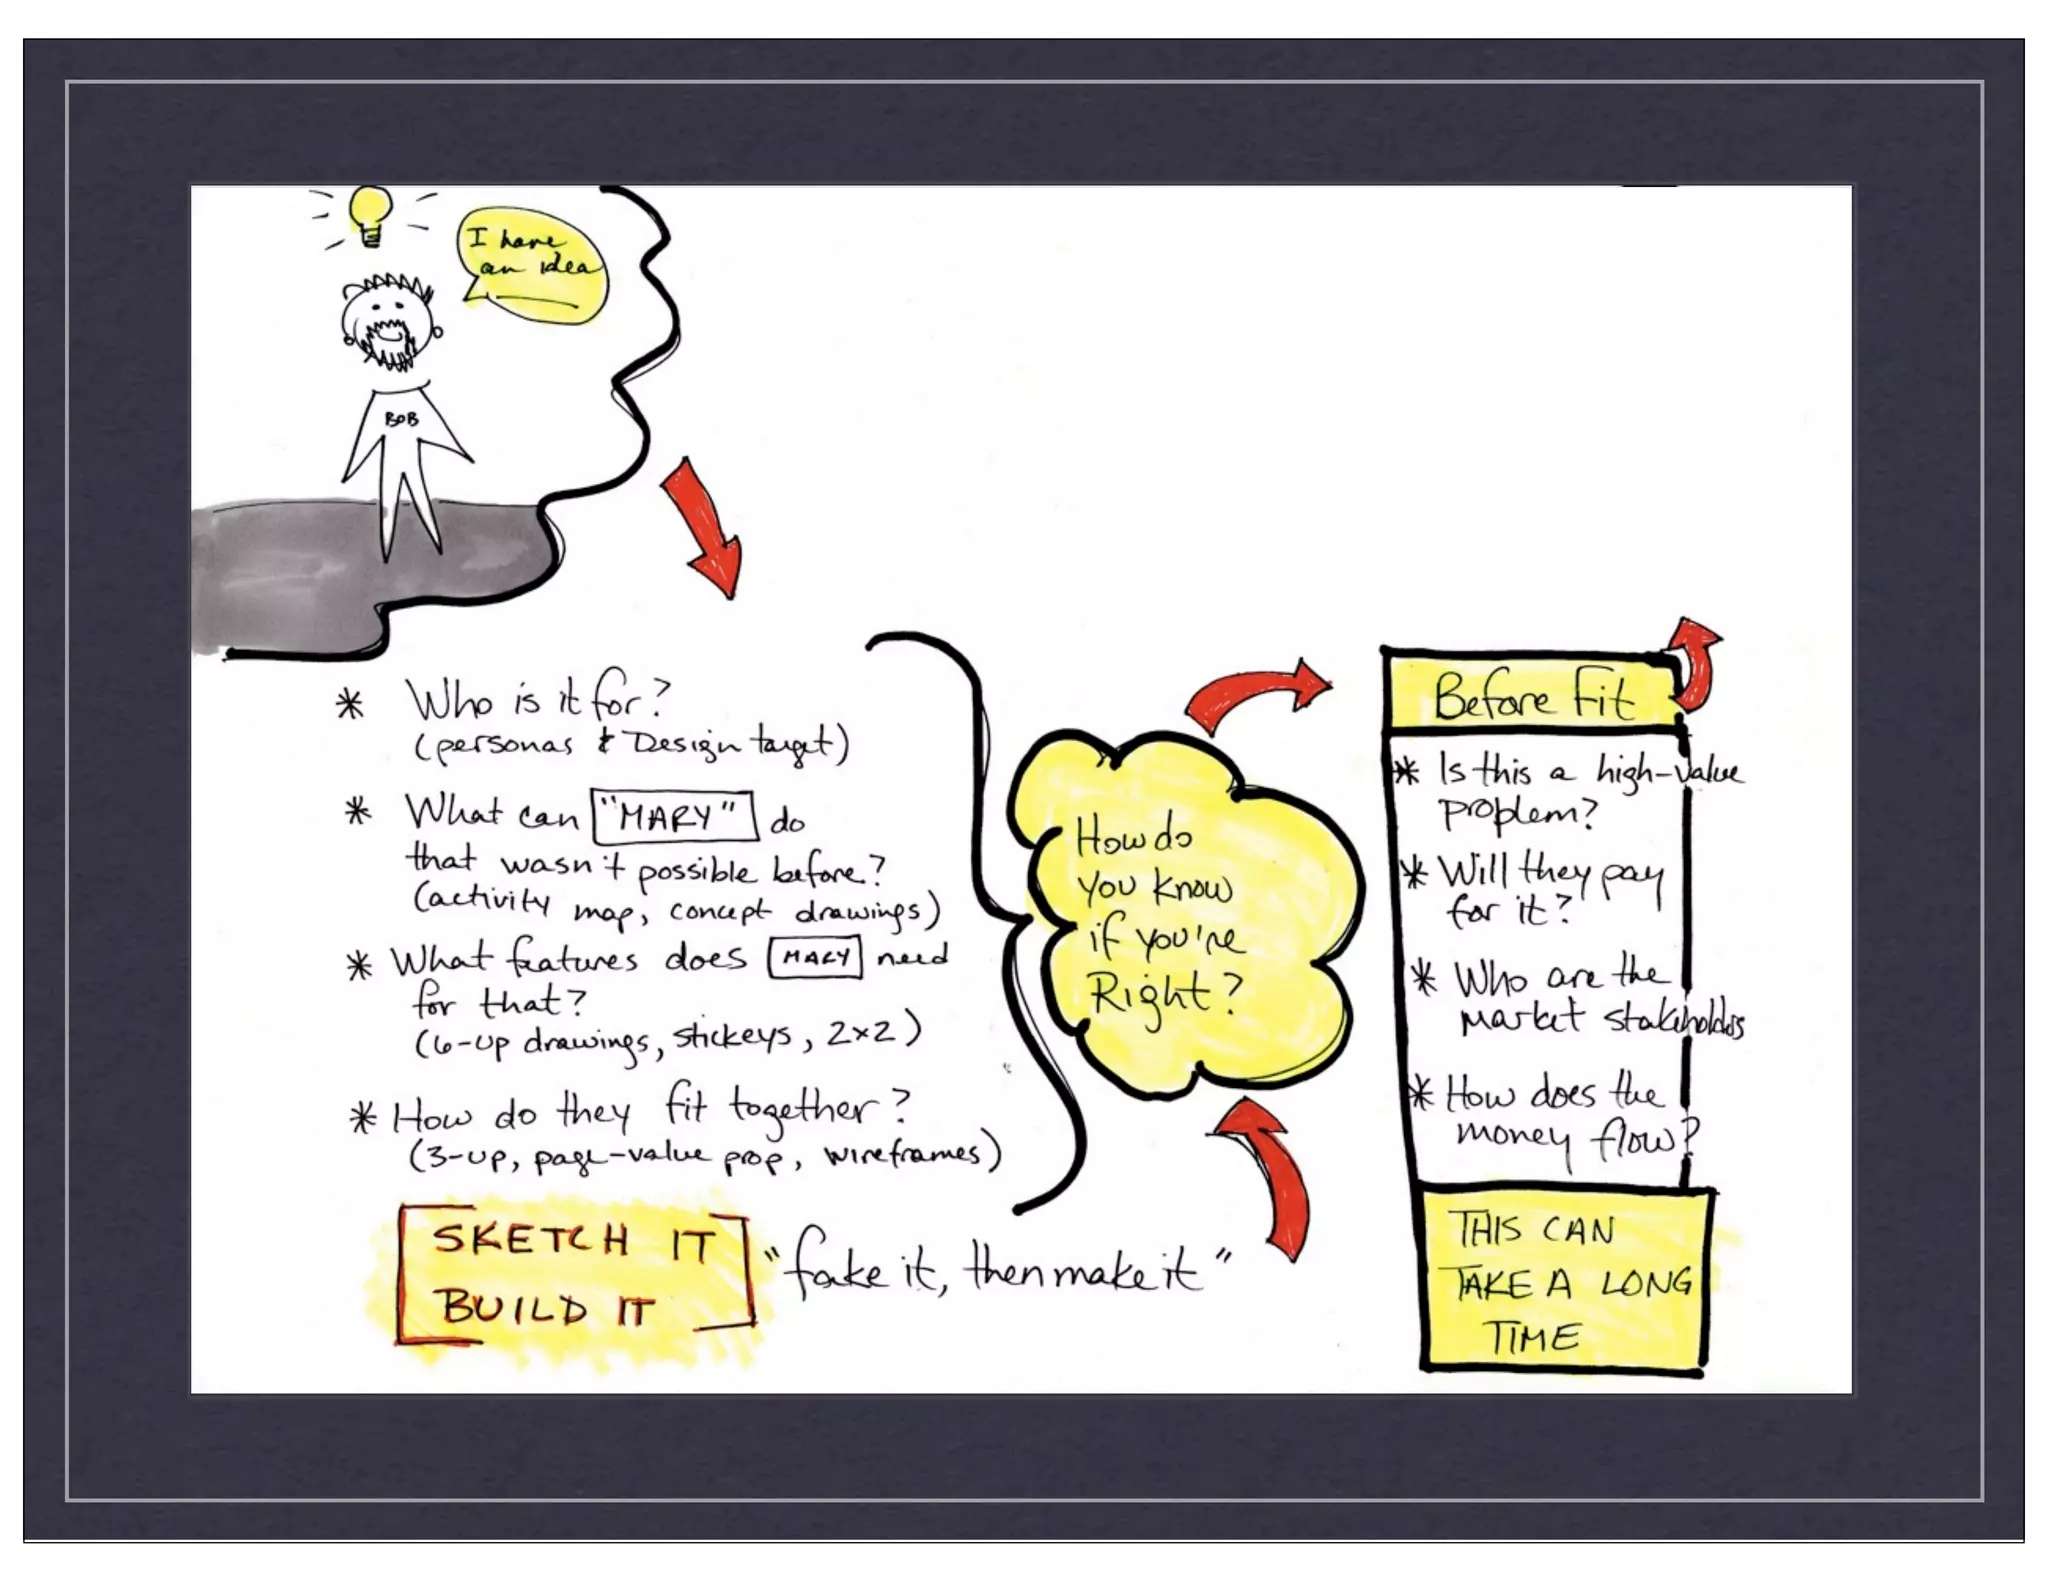 I have
an idea
BOB
* Who is it for?
(personas & Design target)
* What can "MARY" do
that wasn't possible before?
(activity map, concept drawings)
* What features does MARY need
for that?
(6-up drawings, stickeys, 2x2)
* How do they fit together?
(3-up, page-value prop, wireframes)
SKETCH IT
BUILD IT
"fake it, then make it"
How do
you know
if you're
Right?
Before Fit
* Is this a high-value
problem?
* Will they pay
for it?
* Who are the
market stakeholders
* How does the
money flow?
THIS CAN
TAKE A LONG
TIME